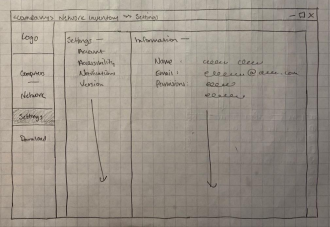 <Company> Network Inventory Settings
Logo
Computers
Network
Settings
Download
Settings
Account
Accessibility
Notifications
Version
Information
Name:
Email:
Permissions: